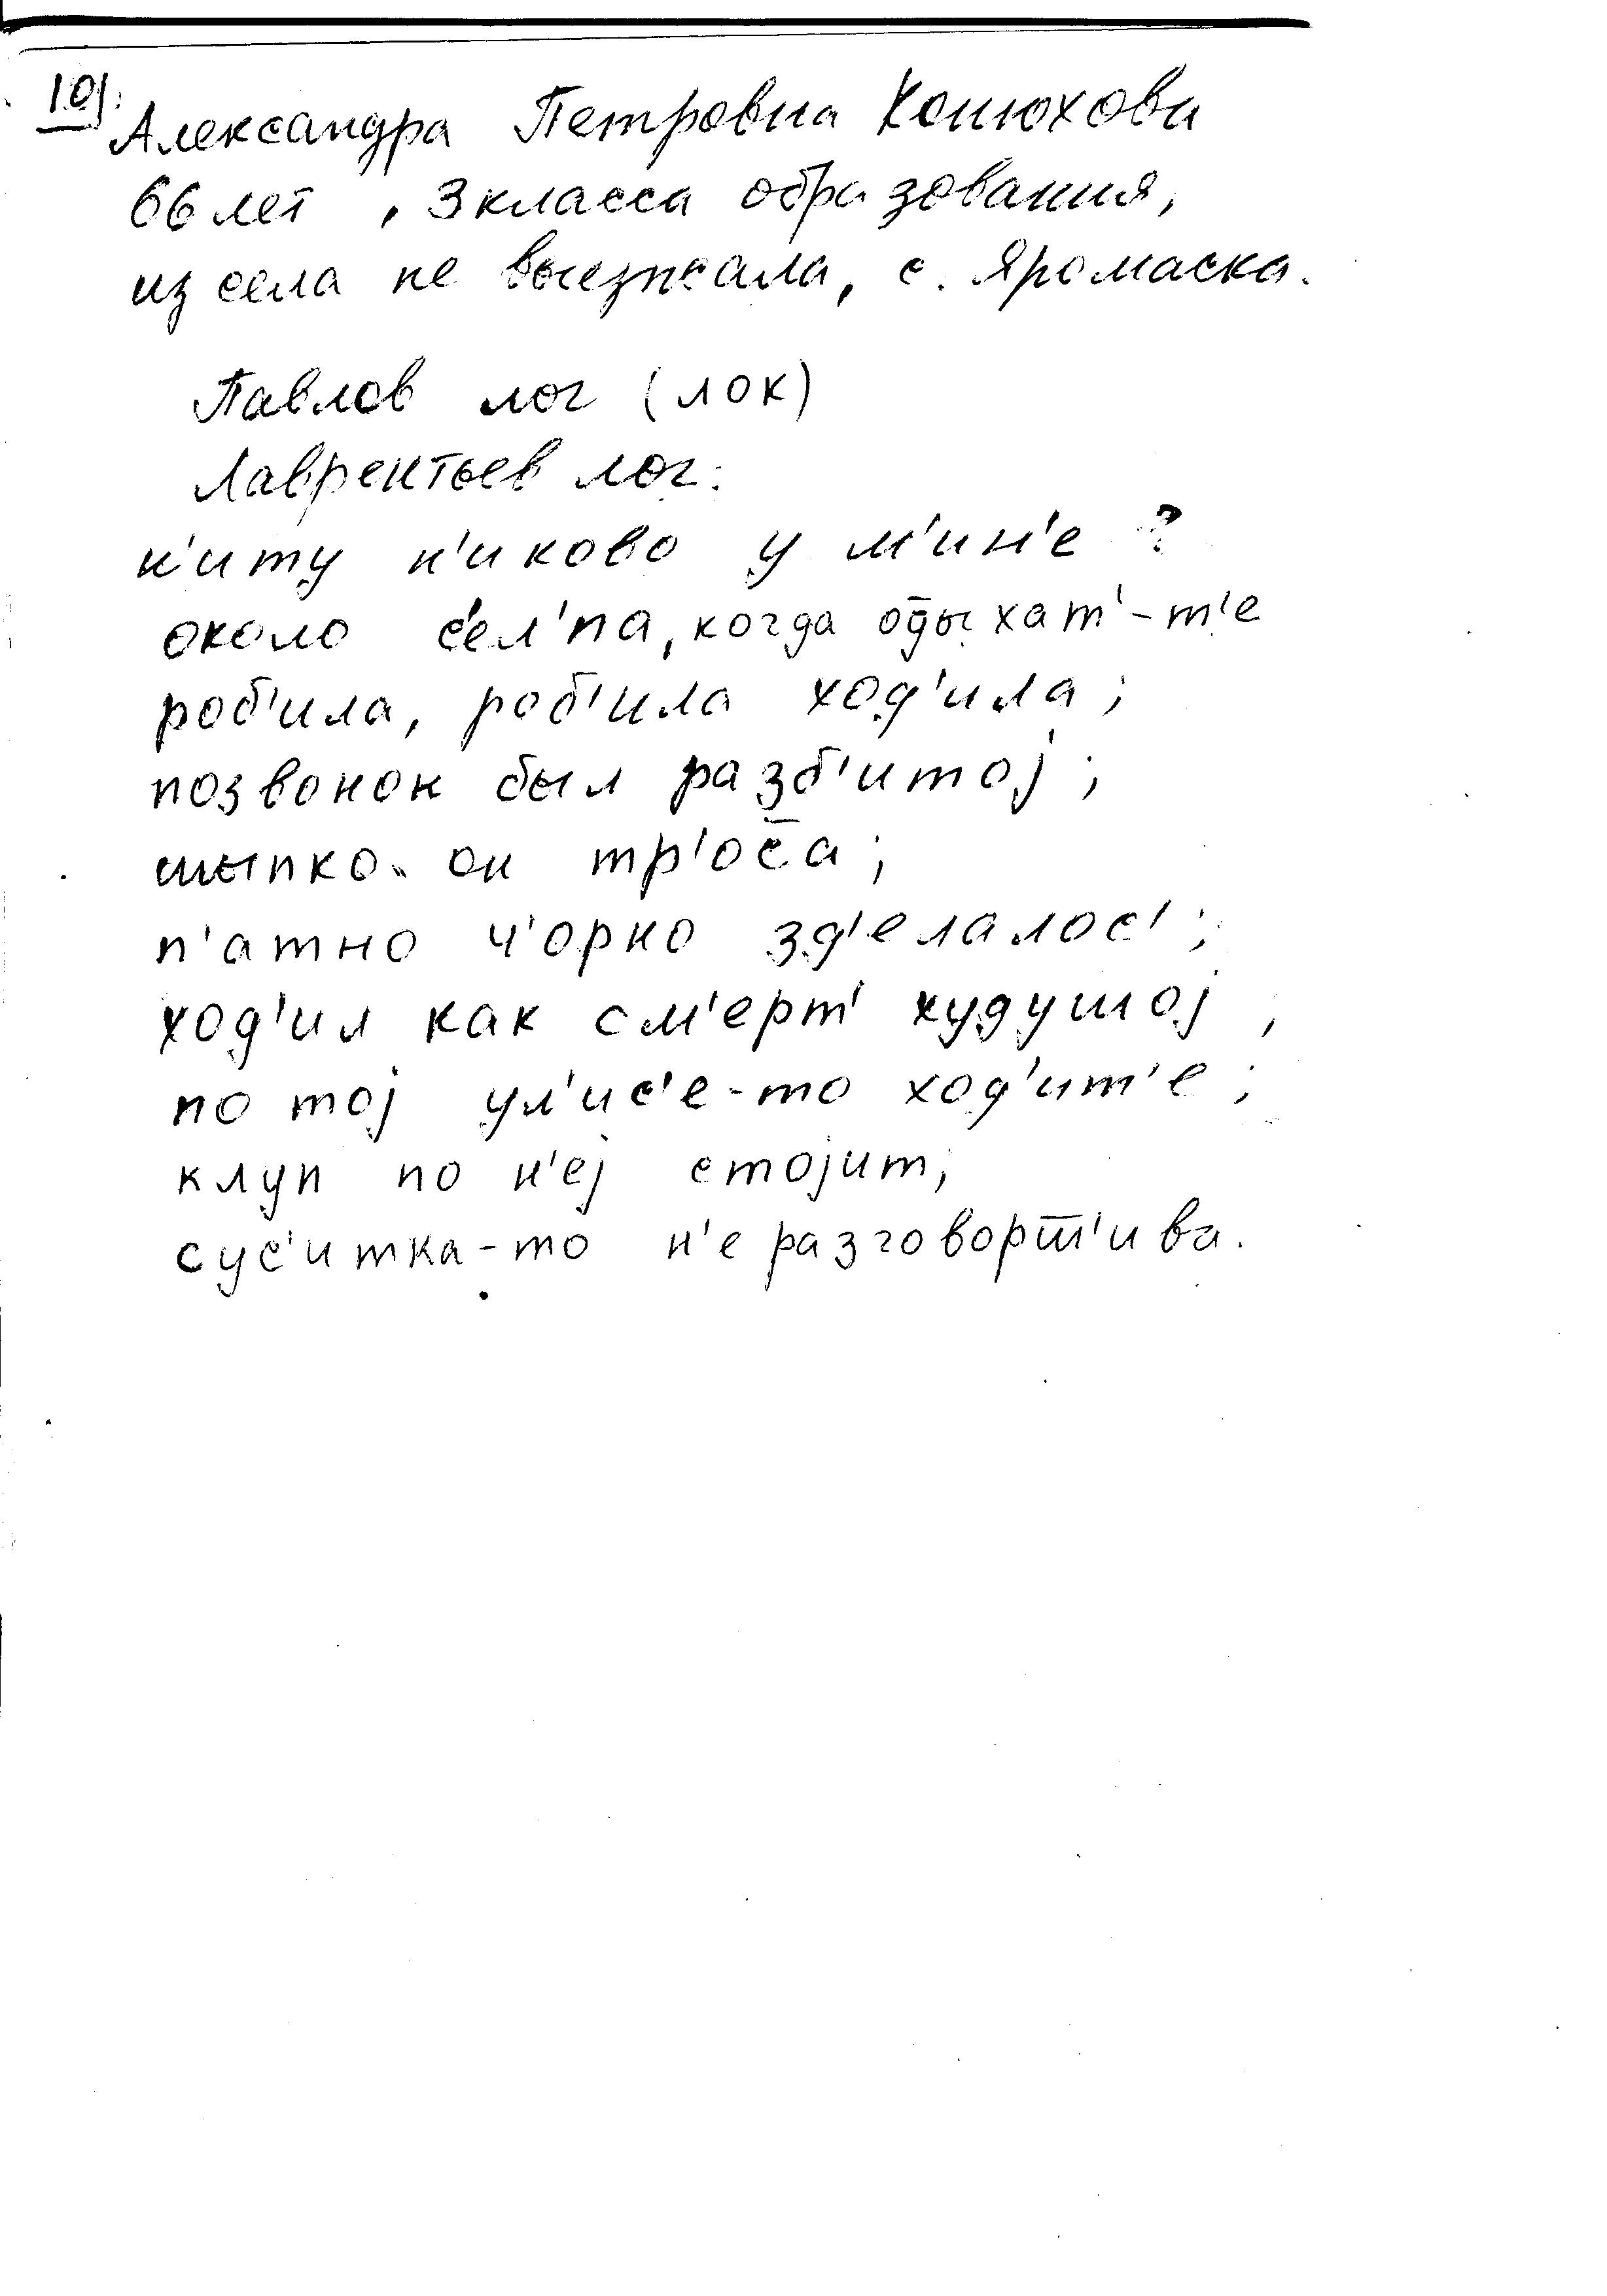 10).
Александра Петровна Конюхова
66 лет, 3 класса образования,
из села не выезжала, с. Яромаска.
Павлов лог (лок)
Лаврентьев лог.
н'иту н'иково у м'ин'е ?
около с'ел'па, когда од̄ыхат'-т'е
роб'ила, роб'ила ход'ила;
позвонок был разб'итој;
шыпко он тр'ос̄а;
п'атно ч'орно зд'елалос';
ход'ил как см'ерт' худушој,
по тој ул'ис'е-то ход'ит'е;
клуп по н'еј стојит;
сус'итка-то н'е разговорт̄'ива.